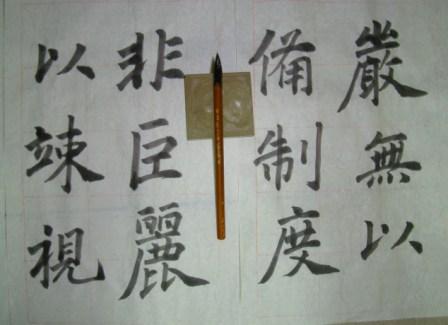 嚴無以
備制度
非巨麗
以竦視